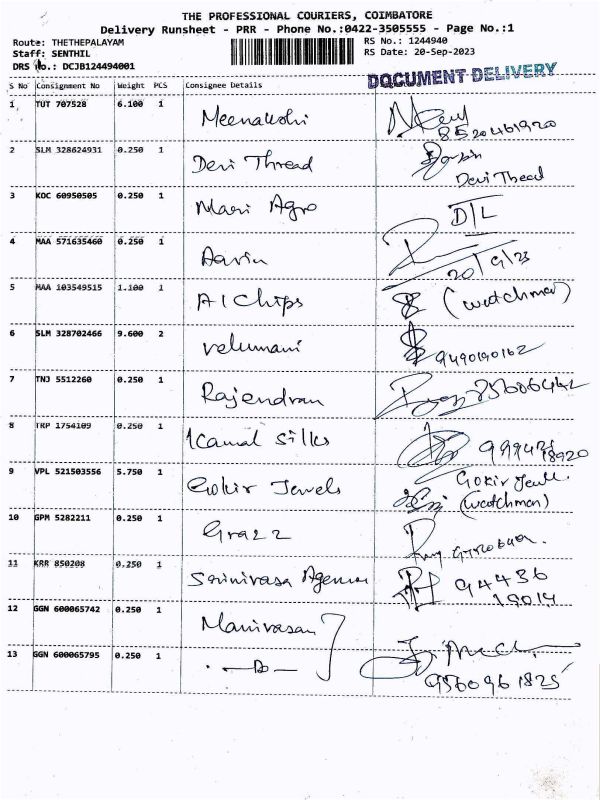 THE PROFESSIONAL COURIERS, COIMBATORE
Delivery Runsheet - PRR - Phone No.:0422-3505555 - Page No.:1
Route: THETHEPALAYAM RS No.: 1244940
Staff: SENTHIL RS Date: 20-Sep-2023
DRS No.: DCJB124494001
DOCUMENT DELIVERY
S No Consignment No Weight PCS Consignee Details
1 TUT 707528 6.100 1 Meenakshi
8520461920
2 SLM 328624931 0.250 1 Devi Thread
Devi Thead
3 KOC 60950505 0.250 1 Mari Agro D/L
4 MAA 571635460 0.250 1 Aavin
20/9/23
5 MAA 103549515 1.100 1 A1 Chips (watchman)
6 SLM 328702466 9.600 2 velumani 9490190162
7 TNJ 5512260 0.250 1 Rajendran
8 TRP 1754109 0.250 1 Kamal Silks
18920
9 VPL 521503556 5.750 1 Gokir Jewels Gokir
(watchman)
10 GPM 5282211 0.250 1
11 KRR 850208 0.250 1 Srinivasa 94436
19014
12 GGN 600065742 0.250 1 Manivasan
13 GGN 600065795 0.250 1 - Do -
9560961825